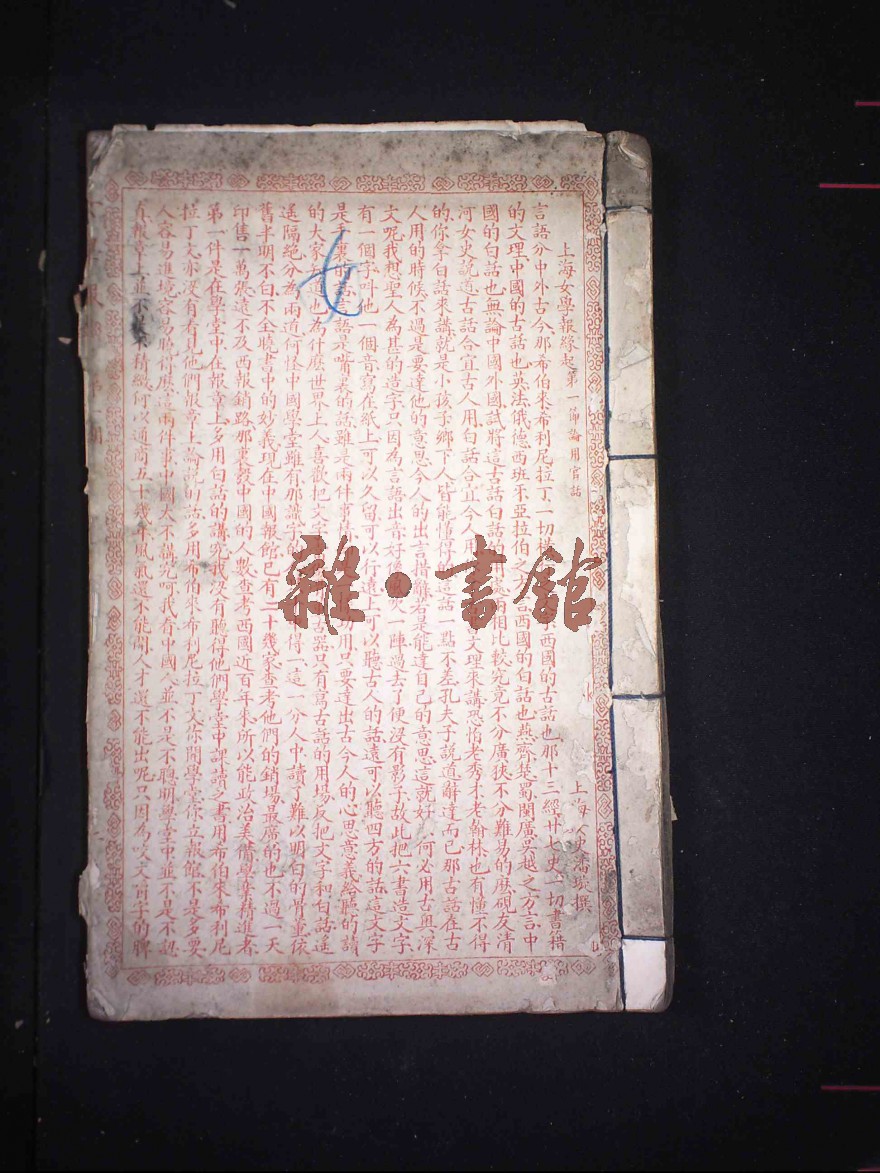 上海女學報緣起 第一節論用官話
上海女史潘璇撰
言語分中外古今那希伯來希利尼拉丁一切 西國的古話也那十三經廿七史一切書籍
的文理中國的古話也英法俄德西班牙亞拉伯之 西國的白話也燕齊楚蜀閩廣吳越之方言中
國的白話也無論中國外國試將這古話白話 相比較究竟不分廣狹不分難易的麽硯友清
河女史說道古話合宜古人用白話合宜今人 文理來講恐怕老秀才老翰林也有懂不得
的你拿白話來講就是小孩子鄉下人皆能懂得的這話一點不差孔夫子說道辭達而已那古話在古
人用的時候不過是要達他的意思今人的出言措辭若是能達自己的意思這就好 何必用古奧深
文呢我想聖人為甚的造字只因為言語出音好 吹一陣過去了便沒有影子故此把六書造文字
有一個字叫他一個音寫在紙上可以久留可以行遠上可以聽古人的話遠可以聽四方的話這文字
是手裏的話言語是嘴裏的話雖是兩件事 用只要達出古今人的心思意義給聽的讀
的大家 道也為什麽世界上人喜歡把文字 古器只有寫古話的用場反把文字和白話遙
遙隔絕分為兩道何怪中國學堂雖有那識字的 得一這一分人中讀了難以明白的骨董依
舊半明不白不全曉書中的妙義現在中國報館已有二十幾家查考他們的銷場最廣的也不過一天
印售一萬張遠不及西報銷路那裏發中國的人數查考西國近百年來所以能政治美備學業精進者
第一件是在學堂中在報章上多用白話的講究我沒有聽得他們學堂中課讀之書用希伯來希利尼
拉丁文亦沒有看見他們報章上論說的話多用希伯來希利尼拉丁文你開學堂你立報館不是多要
人容易進境容易曉得麽這兩件事中國大不講究可我看中國人並不是不聰明學堂中並不是不認
真報章上並不是不精緻何以通商五十幾年風氣還不能開人才還不能出呢只因為以文背字的脾